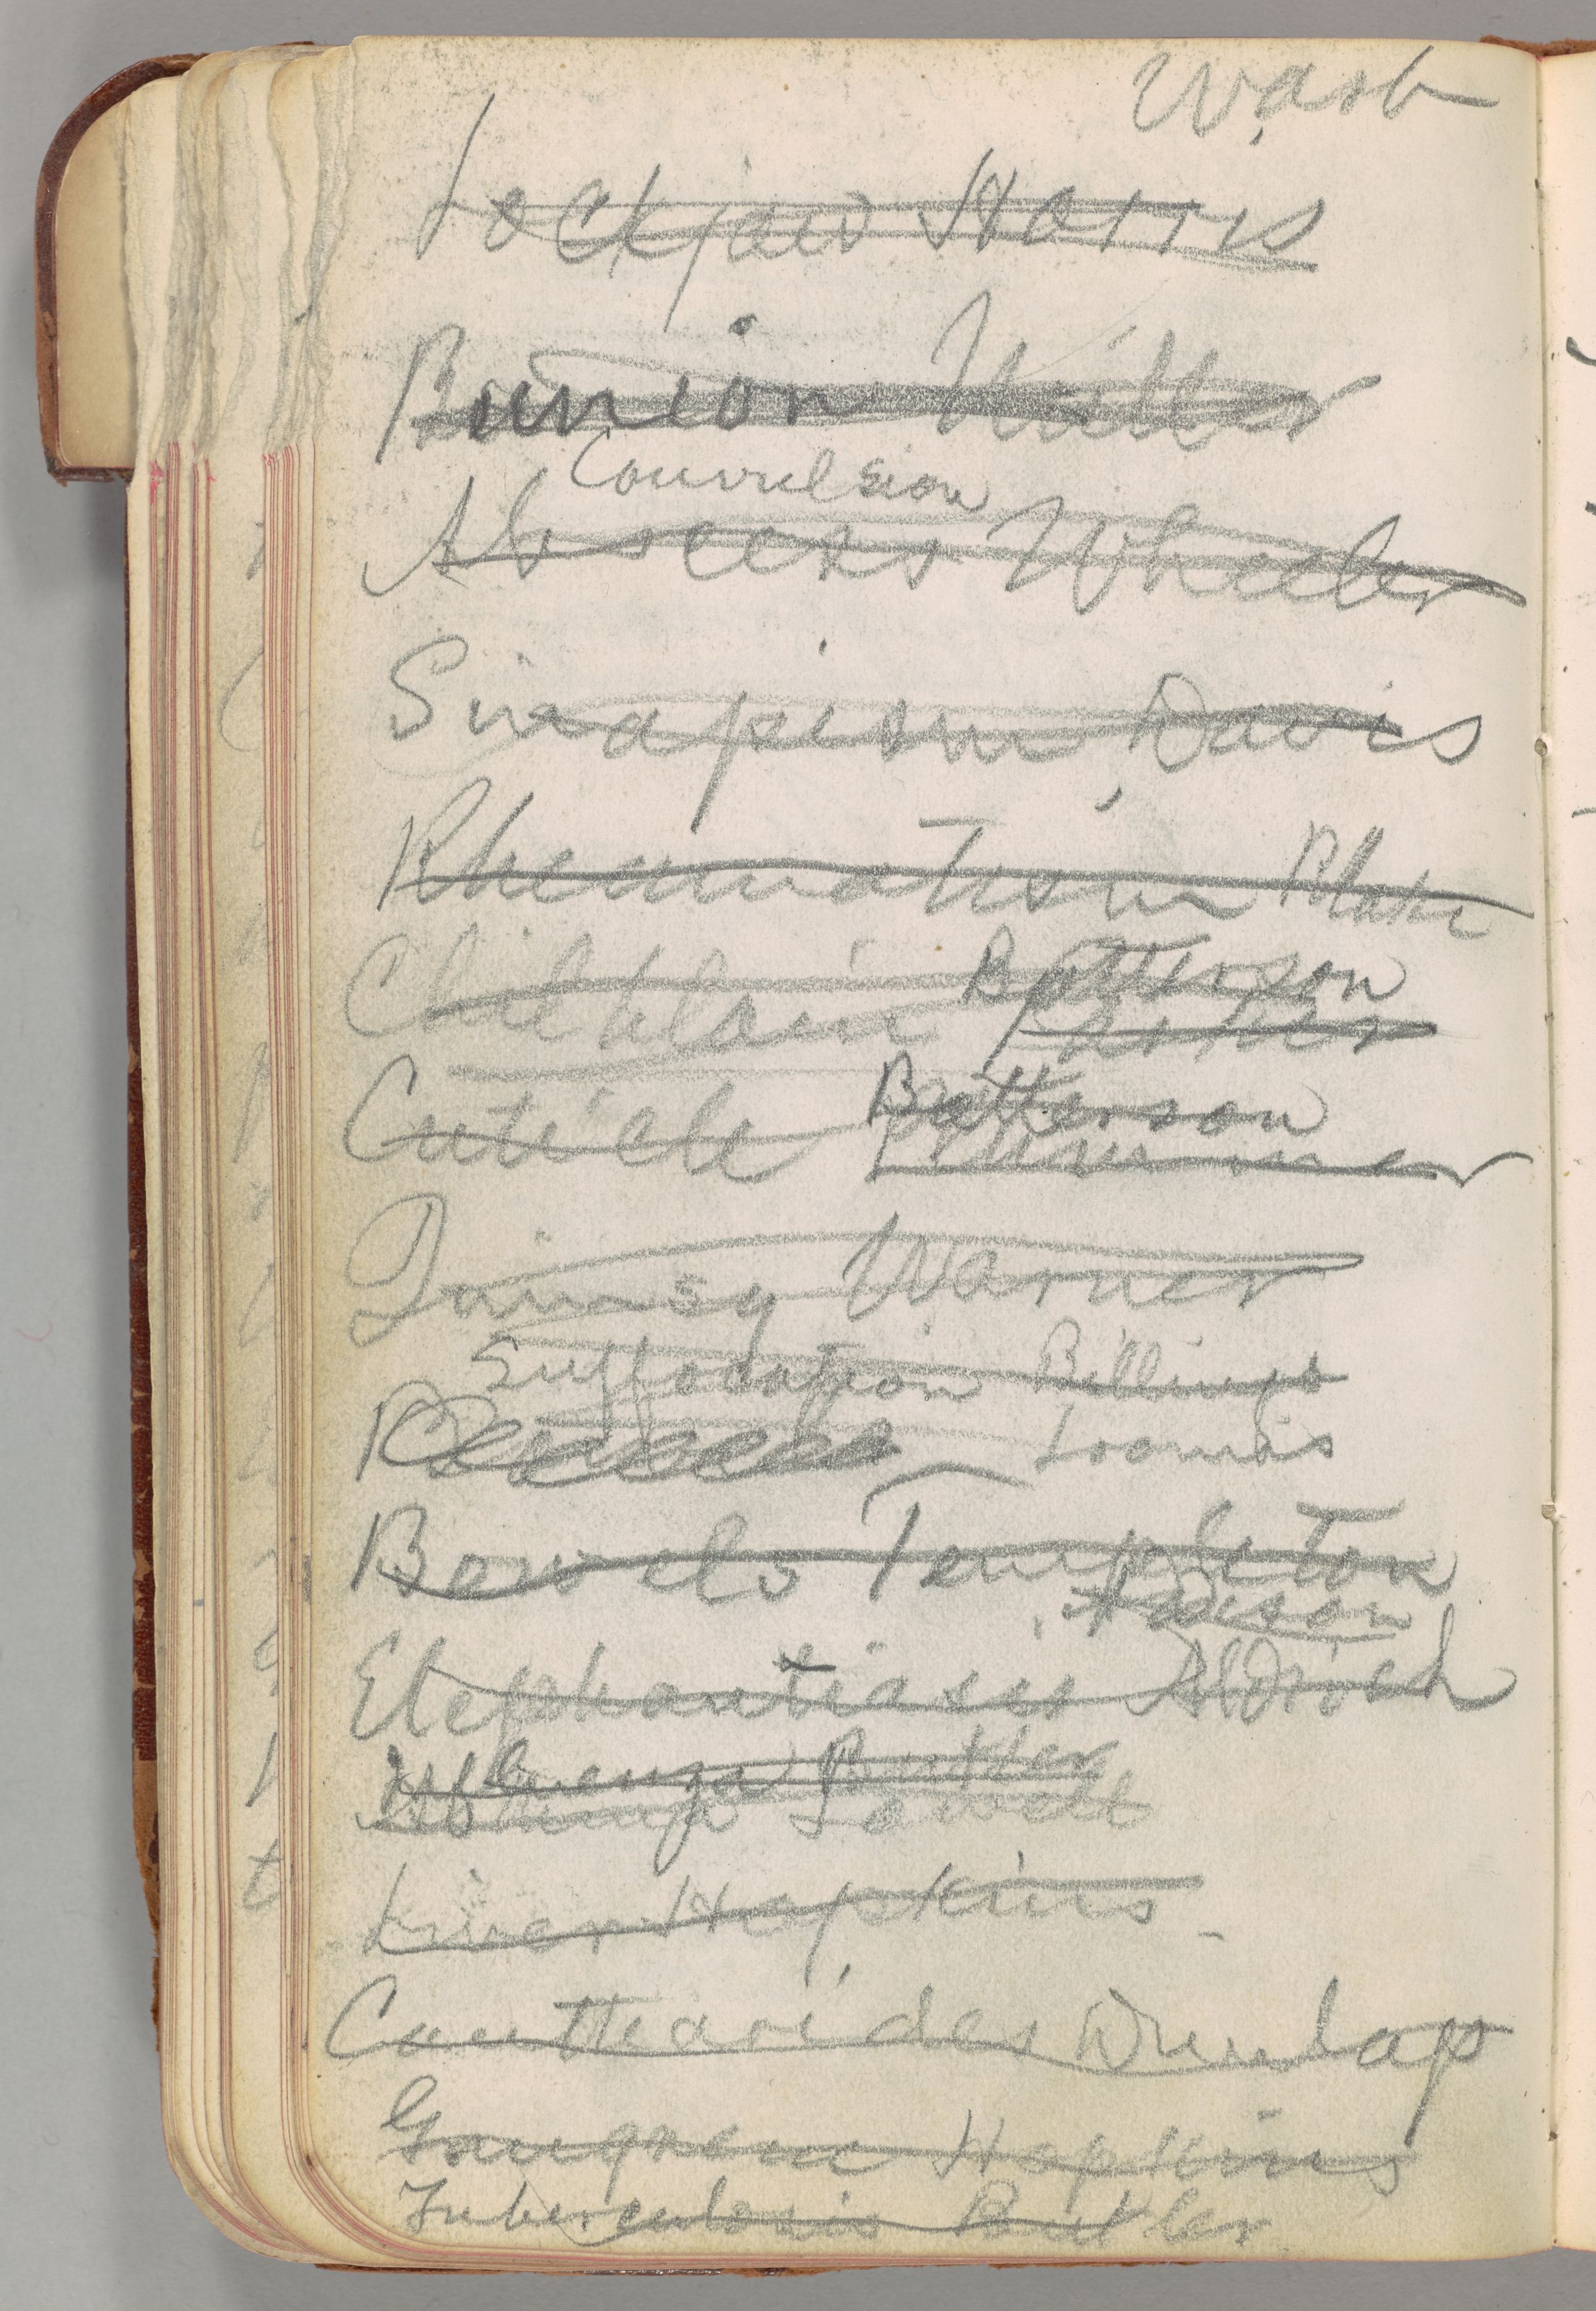 Wash
Lockjaw Harris
Bunion Miller
Convulsion
Abscess Wheeler
Sinapism Davis
Rheumatism Blake
Chilblain Batterson
Cuticle Batterson
Plummer
Quinsy Warner
Suffocation Billings
Loomis
Bowels Templeton
Adison
Elephantiasis Aldrich
Influenza Butler
Lowell
Liver Hopkins
Cantharides Dunlap
Gangrene Hopkins
Tuberculosis Butler